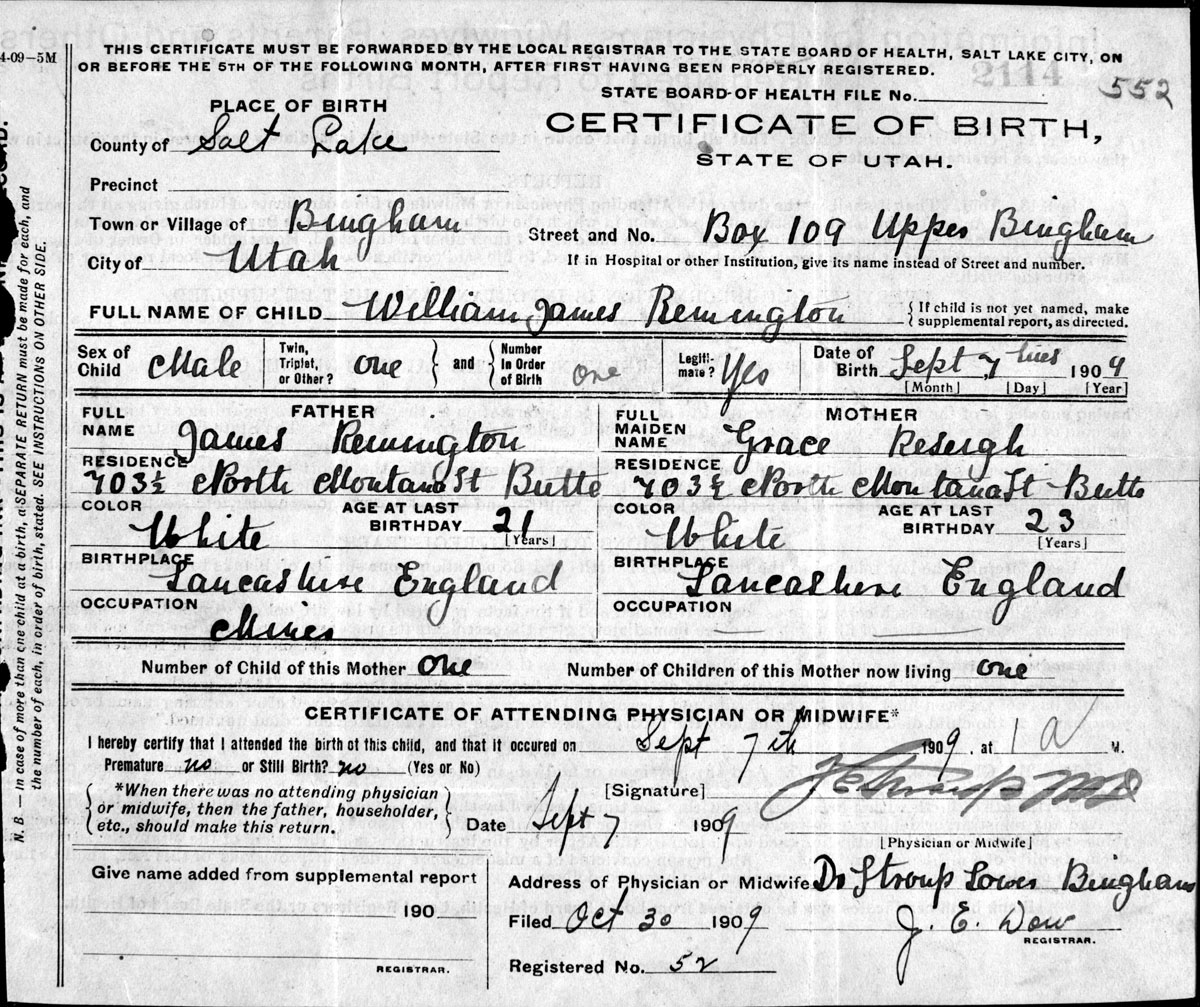 4-09-5M
THIS CERTIFICATE MUST BE FORWARDED BY THE LOCAL REGISTRAR TO THE STATE BOARD OF HEALTH, SALT LAKE CITY, ON
OR BEFORE THE 5TH OF THE FOLLOWING MONTH, AFTER FIRST HAVING BEEN PROPERLY REGISTERED.
2114
552
STATE BOARD OF HEALTH FILE No.
PLACE OF BIRTH
CERTIFICATE OF BIRTH,
STATE OF UTAH.
County of Salt Lake
Precinct
Town or Village of Bingham
Street and No. Box 109 Upper Bingham
City of Utah
If in Hospital or other Institution, give its name instead of Street and number.
FULL NAME OF CHILD William James Remington
{ If child is not yet named, make
supplemental report, as directed.
Sex of Child Male
Twin, Triplet, or Other? one
and
Number in Order of Birth one
Legiti-mate? Yes
Date of Birth Sept 7 1909
[Month] [Day] [Year]
FATHER
FULL NAME James Remington
RESIDENCE 703½ North Montana St Butte
COLOR White
AGE AT LAST BIRTHDAY 21 [Years]
BIRTHPLACE Lancashire England
OCCUPATION Miner
MOTHER
FULL MAIDEN NAME Grace
RESIDENCE 703½ North Montana St Butte
COLOR White
AGE AT LAST BIRTHDAY 23 [Years]
BIRTHPLACE Lancashire England
OCCUPATION
Number of Child of this Mother one
Number of Children of this Mother now living one
CERTIFICATE OF ATTENDING PHYSICIAN OR MIDWIFE*
I hereby certify that I attended the birth of this child, and that it occured on Sept 7th 1909, at 1 a M.
Premature no or Still Birth? no (Yes or No)
*When there was no attending physician
or midwife, then the father, householder,
etc., should make this return.
[Signature] Stroup MD
Date Sept 7 1909
[Physician or Midwife]
Give name added from supplemental report
190
REGISTRAR.
Address of Physician or Midwife Dr Stroup Lower Bingham
Filed Oct 30 1909
J. E. Dow
REGISTRAR.
Registered No. 52
N. B. — In case of more than one child at a birth, a SEPARATE RETURN must be made for each, and
the number of each, in order of birth, stated. SEE INSTRUCTIONS ON OTHER SIDE.